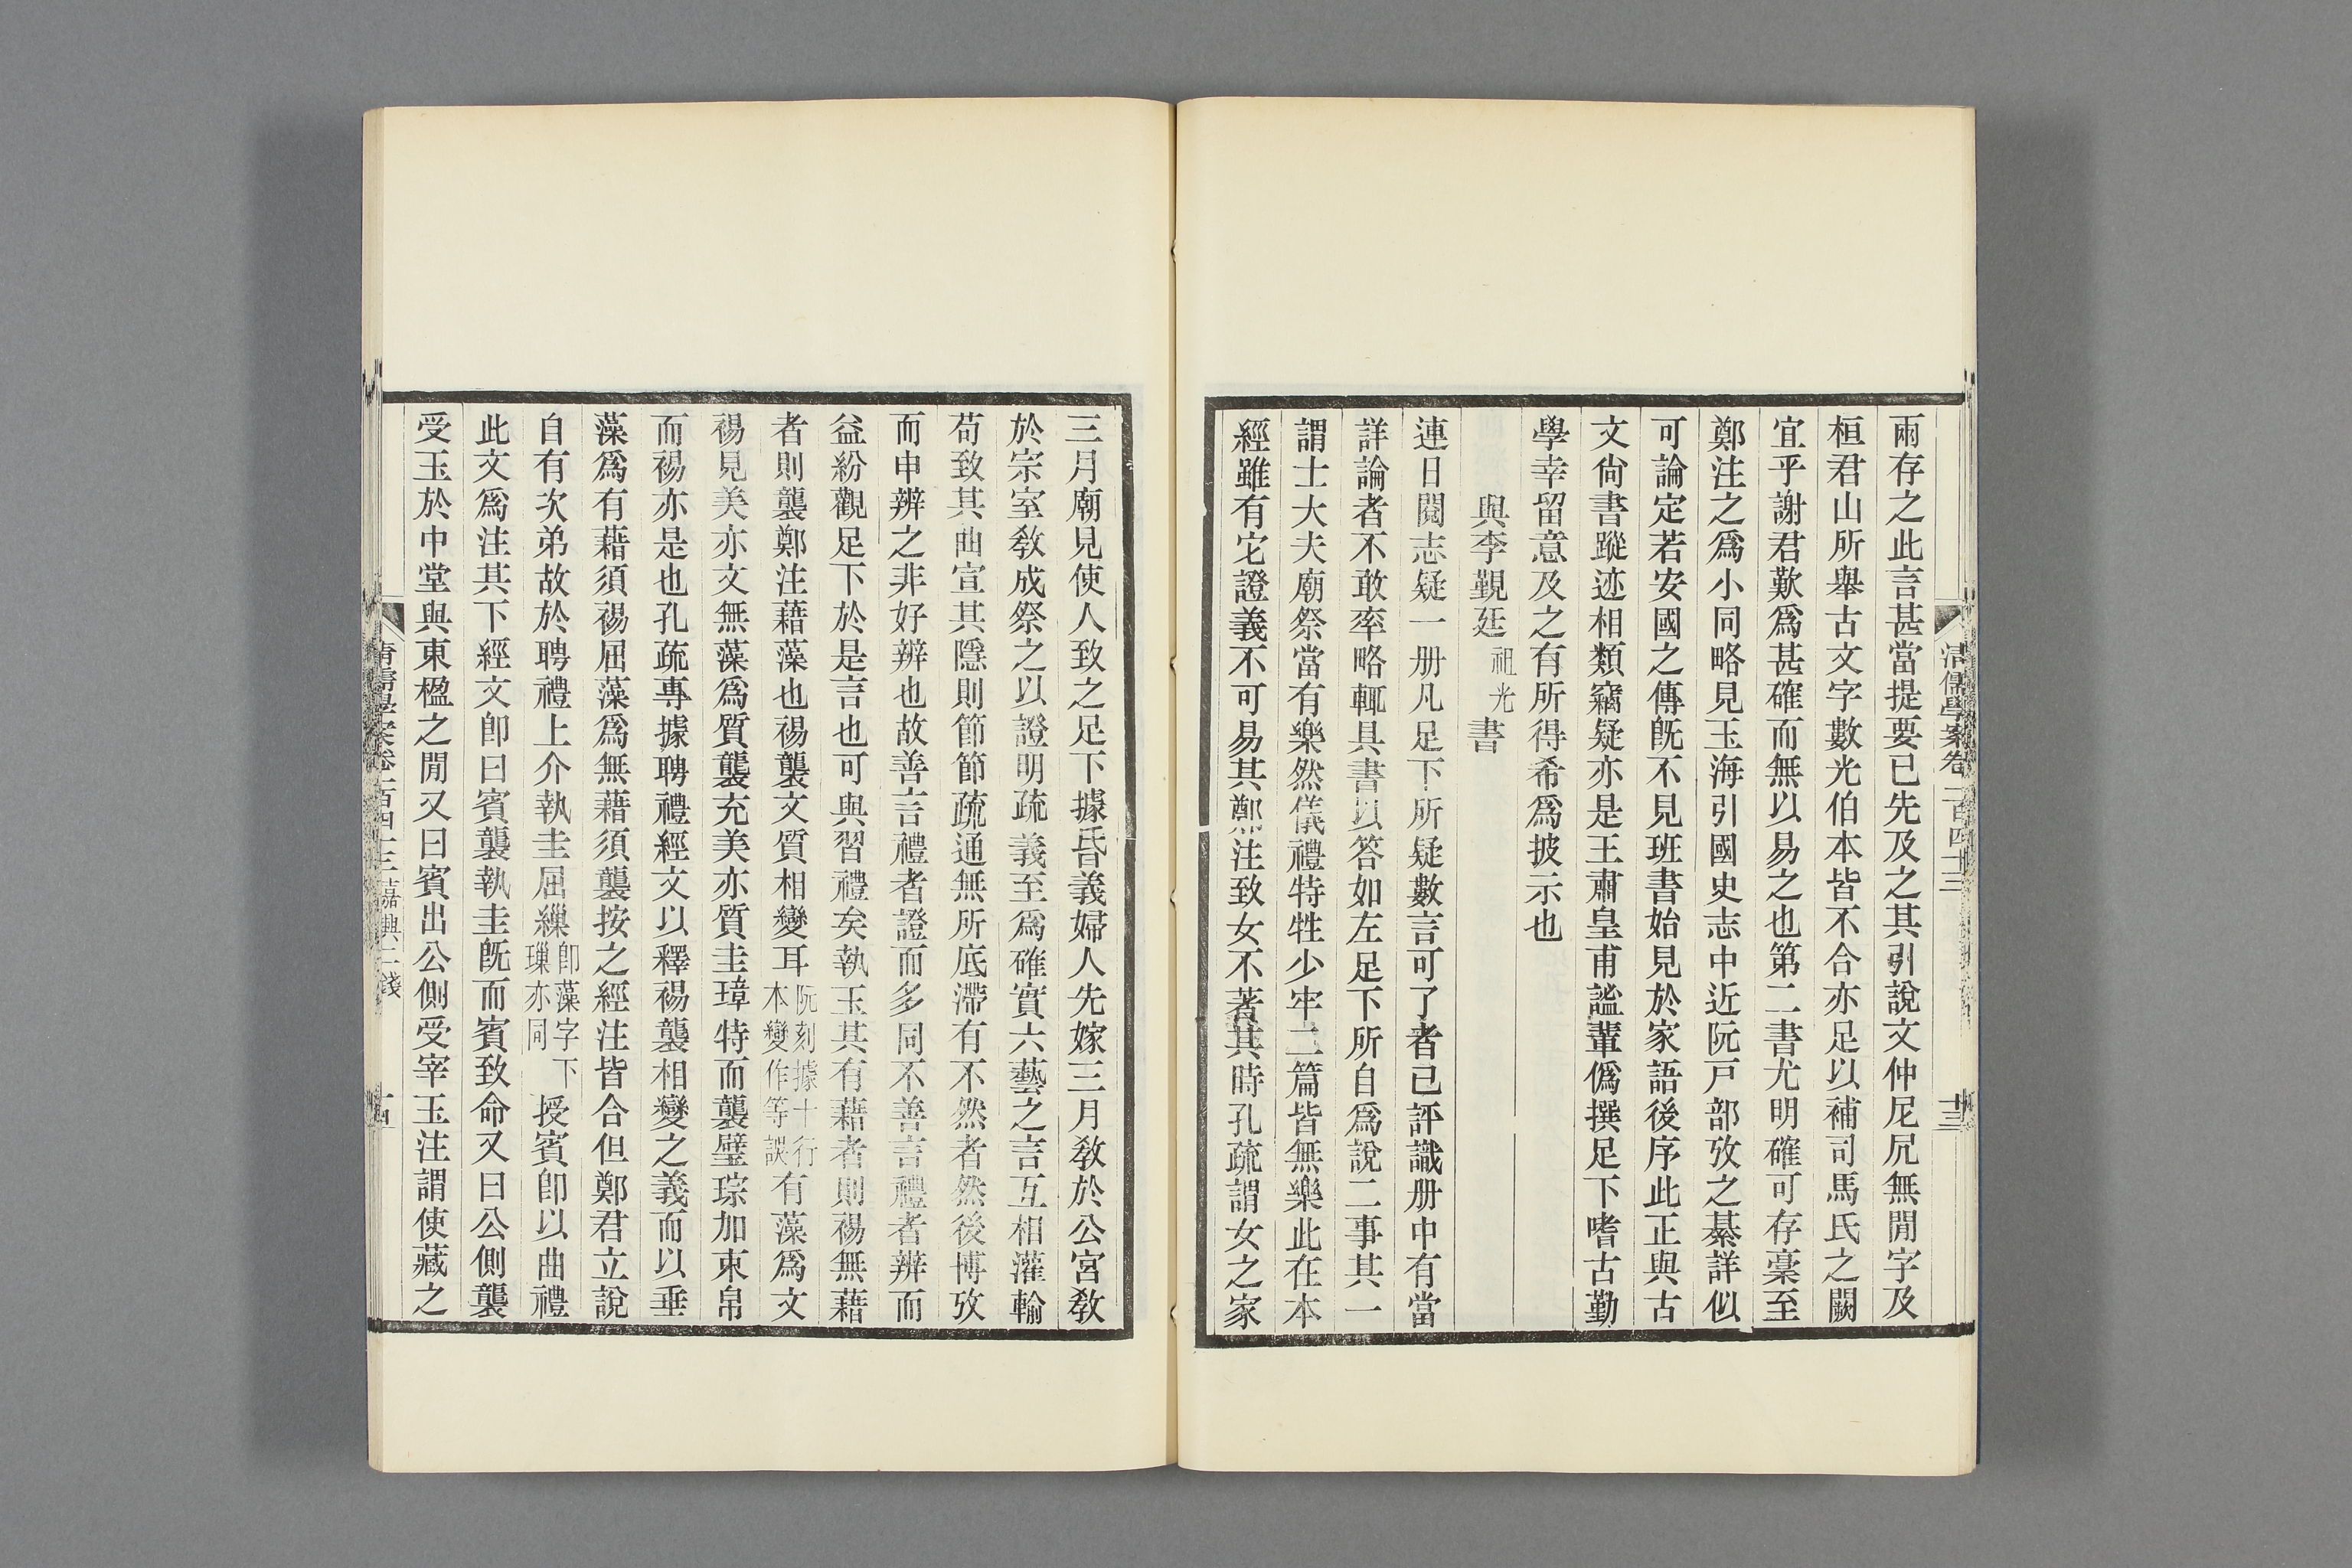 清儒學案卷一百四十三
十三
兩存之此言甚當提要已先及之其引說文仲尼凥無閒字及
桓君山所舉古文字數光伯本皆不合亦足以補司馬氏之闕
宜乎謝君歎爲甚確而無以易之也第二書尤明確可存臺至
鄭注之爲小同略見玉海引國史志中近阮戸部攷之綦詳似
可論定若安國之傳旣不見班書始見於家語後序此正與古
文尙書蹤迹相類竊疑亦是王肅皇甫謐輩僞撰足下嗜古勤
學幸留意及之有所得希爲披示也
與李覲廷祖光書
連日閱志疑一册凡足下所疑數言可了者已評識册中有當
詳論者不敢率略輒具書以答如左足下所自爲說二事其一
謂士大夫廟祭當有樂然儀禮特牲少牢二篇皆無樂此在本
經雖有它證義不可易其鄭注致女不著其時孔疏謂女之家
三月廟見使人致之足下據昏義婦人先嫁三月敎於公宮敎
於宗室敎成祭之以證明疏義至爲確實六藝之言互相灌輸
苟致其曲宣其隱則節節疏通無所底滯有不然者然後博攷
而申辨之非好辨也故善言禮者證而多同不善言禮者辨而
益紛觀足下於是言也可與習禮矣執玉其有藉者則裼無藉
者則襲鄭注藉藻也裼襲文質相變耳阮刻據十行本變作等誤有藻爲文
裼見美亦文無藻爲質襲充美亦質圭璋特而襲璧琮加束帛
而裼亦是也孔疏專據聘禮經文以釋裼襲相變之義而以垂
藻爲有藉須裼屈藻爲無藉須襲按之經注皆合但鄭君立說
自有次弟故於聘禮上介執圭屈繅卽藻字下璅亦同授賓卽以曲禮
此文爲注其下經文卽曰賓襲執圭旣而賓致命又曰公側襲
受玉於中堂與東楹之閒又曰賓出公側受宰玉注謂使藏之
清儒學案卷一百四十三嘉興二錢
十四